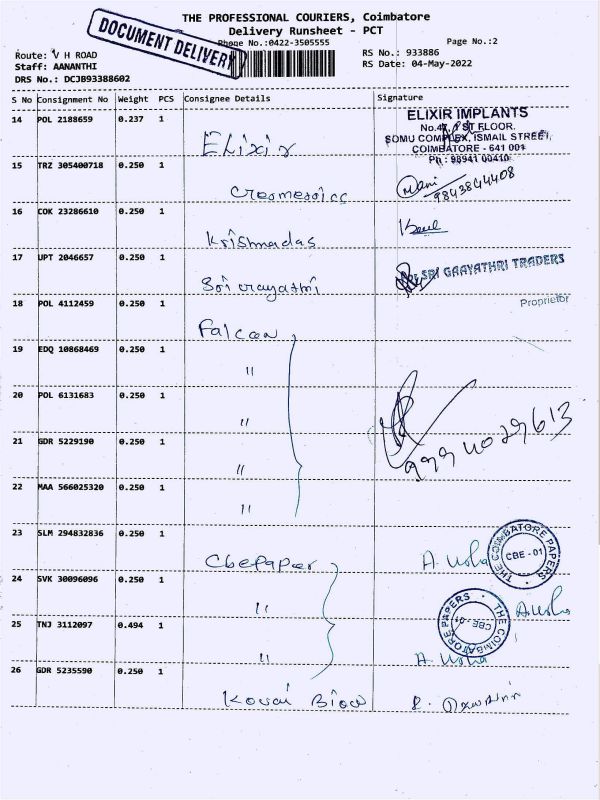 THE PROFESSIONAL COURIERS, Coimbatore
Delivery Runsheet - PCT
DOCUMENT DELIVERY
Phone No.:0422-3505555
Page No.:2
Route: V H ROAD
RS No.: 933886
Staff: AANANTHI
RS Date: 04-May-2022
DRS No.: DCJB93388602
S No Consignment No Weight PCS Consignee Details Signature
14 POL 2188659 0.237 1 Elixir
ELIXIR IMPLANTS
No.47, I ST FLOOR.
SOMU COMPLEX, ISMAIL STREET,
COIMBATORE - 641 001
Ph : 98941 00410
15 TRZ 305400718 0.250 1
Mani
9843844408
16 COK 23286610 0.250 1 Krishnadas
17 UPT 2046657 0.250 1 Sri
SRI GAAYATHRI TRADERS
Proprietor
18 POL 4112459 0.250 1 Falcon
19 EDQ 10868469 0.250 1 "
20 POL 6131683 0.250 1 "
21 GDR 5229190 0.250 1 "
22 MAA 566025320 0.250 1 "
23 SLM 294832836 0.250 1 Cbepaper A. Usha
THE COIMBATORE PAPERS
CBE - 01
24 SVK 30096096 0.250 1 " A. Usha
THE COIMBATORE PAPERS
CBE - 01
25 TNJ 3112097 0.494 1 " A. Usha
26 GDR 5235590 0.250 1 Kovai